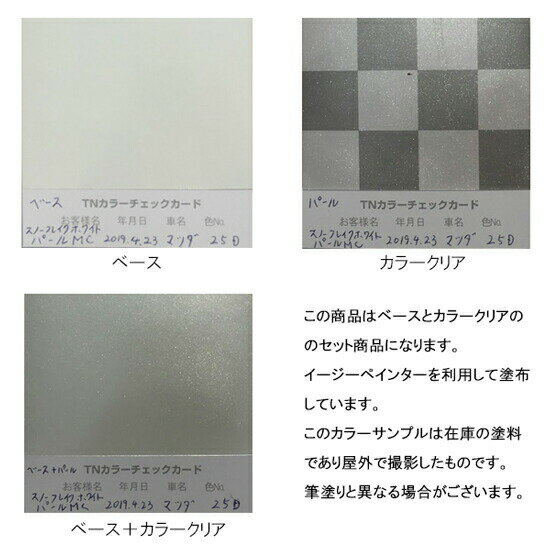 ベース
TNカラーチェックカード
お客様名 年月日 車名 色No.
スノーフレイクホワイト
パールMC 2019.4.23 マツダ 25D
ベース
パール
TNカラーチェックカード
お客様名 年月日 車名 色No.
スノーフレイクホワイト
パールMC 2019.4.23 マツダ 25D
カラークリア
ベース+パール TNカラーチェックカード
お客様名 年月日 車名 色No.
スノーフレイクホワイト
パールMC 2019.4.23 マツダ 25D
ベース＋カラークリア
この商品はベースとカラークリアの
のセット商品になります。
イージーペインターを利用して塗布
しています。
このカラーサンプルは在庫の塗料
であり屋外で撮影したものです。
筆塗りと異なる場合がございます。